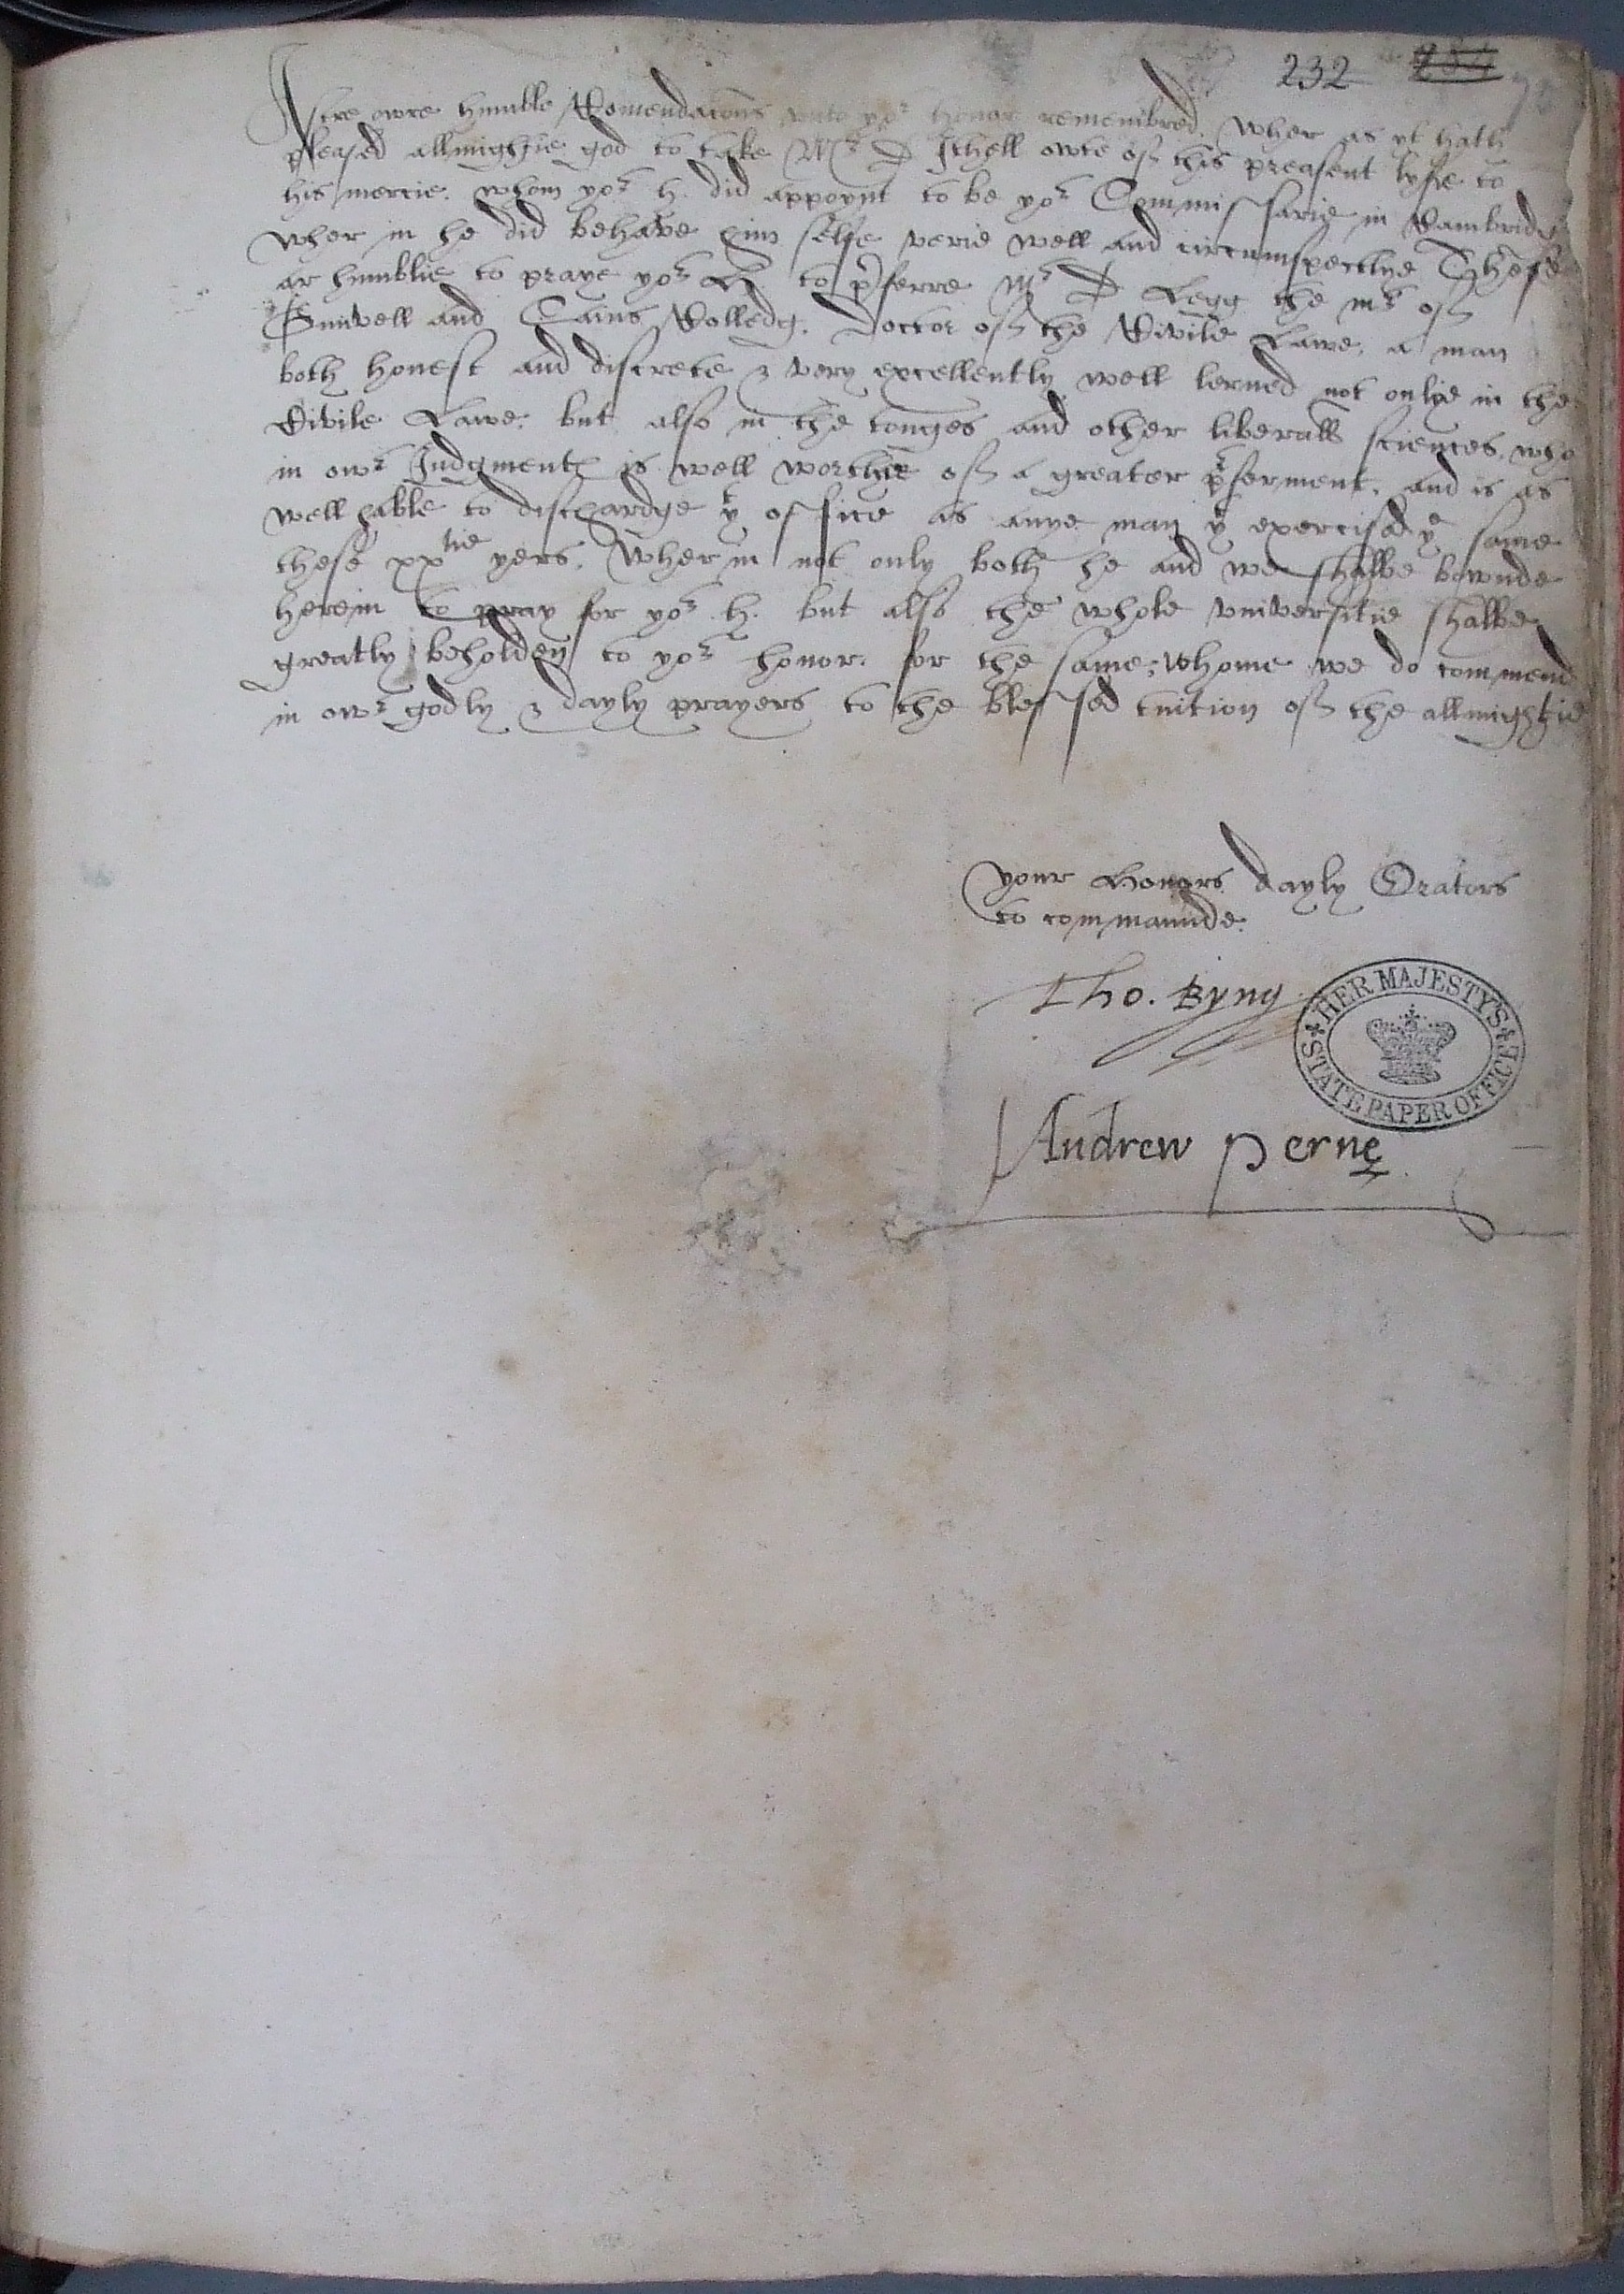 232
After owre humble Comendacons vnto yor honor remembred. Wher as yt hath
pleased allmightie god to take Mr D Ithell owte off this preasent lyffe to
his mercie. whom yor h. did appoynt to be yor Commissarie in Cambridg
wher in he did behave him selfe verie well and circumspectlye Thes
ar humblie to praye yor H. to prferre Mr D Legg the mr off
Gunvell and Caius Colledg. Doctor off the Civile Lawe, a man
both honest and discrete & very excellently well lerned not onlye in the
Civile Lawe. but also in the tonges and other liberall sciences. who
in owr Judgment is well worthie off a greater prferment. and is as
well hable to dischardge yt office as anye man yt exercised ye same
these xxtie yers. Wher in not only both he and we shalbe bownde
herein to pray for yor h. but also the whole vniversitie shalbe
greatly beholden to yor honor. for the same; whome we do commend
in owr godly & dayly prayers to the blessed tuition off the allmightie
your Honors dayly Orators
to commaunde.
Tho. Byng
HER MAJESTY'S STATE PAPER OFFICE
Andrew Perne